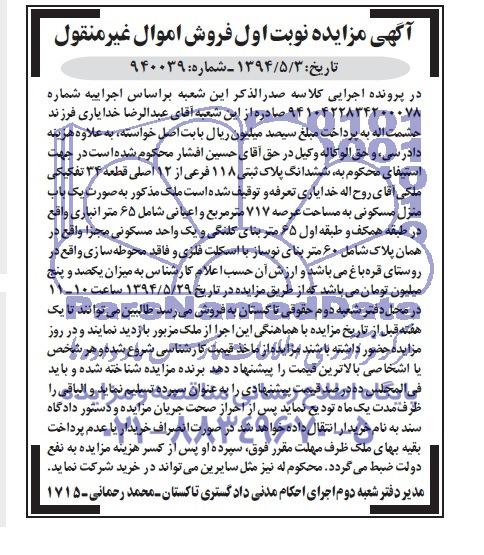 آگهی مزایده نوبت اول فروش اموال غیرمنقول
تاریخ: ۱۳۹۴/۵/۳ ـ شماره: ۹۴۰۰۳۹
در پرونده اجرایی کلاسه صدرالذکر این شعبه براساس اجراییه شماره
۹۴۱۰۴۲۲۸۳۴۲۰۰۰۷۸ صادره از این شعبه آقای عبدالرضا خدایاری فرزند
حشمت اله به پرداخت مبلغ سیصد میلیون ریال بابت اصل خواسته، به علاوه هزینه
دادرسی، و حق الوکاله وکیل در حق آقای حسین افشار محکوم شده است در جهت
استیفای محکوم به، ششدانگ پلاک ثبتی ۱۱۸ فرعی از ۱۲ اصلی قطعه ۳۴ تفکیکی
ملکی آقای روح اله خدایاری تعرفه و توقیف شده است ملک مذکور به صورت یک باب
منزل مسکونی به مساحت عرصه ۷۱۷ مترمربع و اعیانی شامل ۶۵ متر انباری واقع
در طبقه همکف و طبقه اول ۶۵ متر بنای کلنگی و یک واحد مسکونی مجزا واقع در
همان پلاک شامل ۶۰ متر بنای نوساز با اسکلت فلزی و فاقد محوطه سازی واقع در
روستای قره باغ می باشد و ارزش آن حسب اعلام کارشناس به میزان یکصد و پنج
میلیون تومان می باشد که از طریق مزایده در تاریخ ۱۳۹۴/۵/۲۹ ساعت ۱۰-۱۱
در محل دفتر شعبه دوم حقوقی تاکستان به فروش می رسد طالبین می توانند تا یک
هفته قبل از تاریخ مزایده با هماهنگی این اجرا از ملک مزبور بازدید نمایند و در روز
مزایده حضور داشته باشند مزایده از ماخذ قیمت کارشناسی شروع شده و هر شخص
یا اشخاصی بالاترین قیمت را پیشنهاد دهد برنده مزایده شناخته شده و باید
فی المجلس ده درصد قیمت پیشنهادی را به عنوان سپرده تسلیم نماید و الباقی را
ظرف مدت یک ماه تودیع نماید پس از احراز صحت جریان مزایده و دستور دادگاه
سند به نام خریدار انتقال داده خواهد شد در صورت انصراف خریدار یا عدم پرداخت
بقیه بهای ملک ظرف مهلت مقرر فوق، سپرده او پس از کسر هزینه مزایده به نفع
دولت ضبط می گردد. محکوم له نیز مثل سایرین می تواند در خرید شرکت نماید.
مدیر دفتر شعبه دوم اجرای احکام مدنی دادگستری تاکستان ـ محمد رحمانی ـ ۱۷۱۵
ParsNamadData
پایگاه اطلاع رسانی مناقصه و مزایده
۰۲۱-۸۸۳۴۹۶۷۰-۵